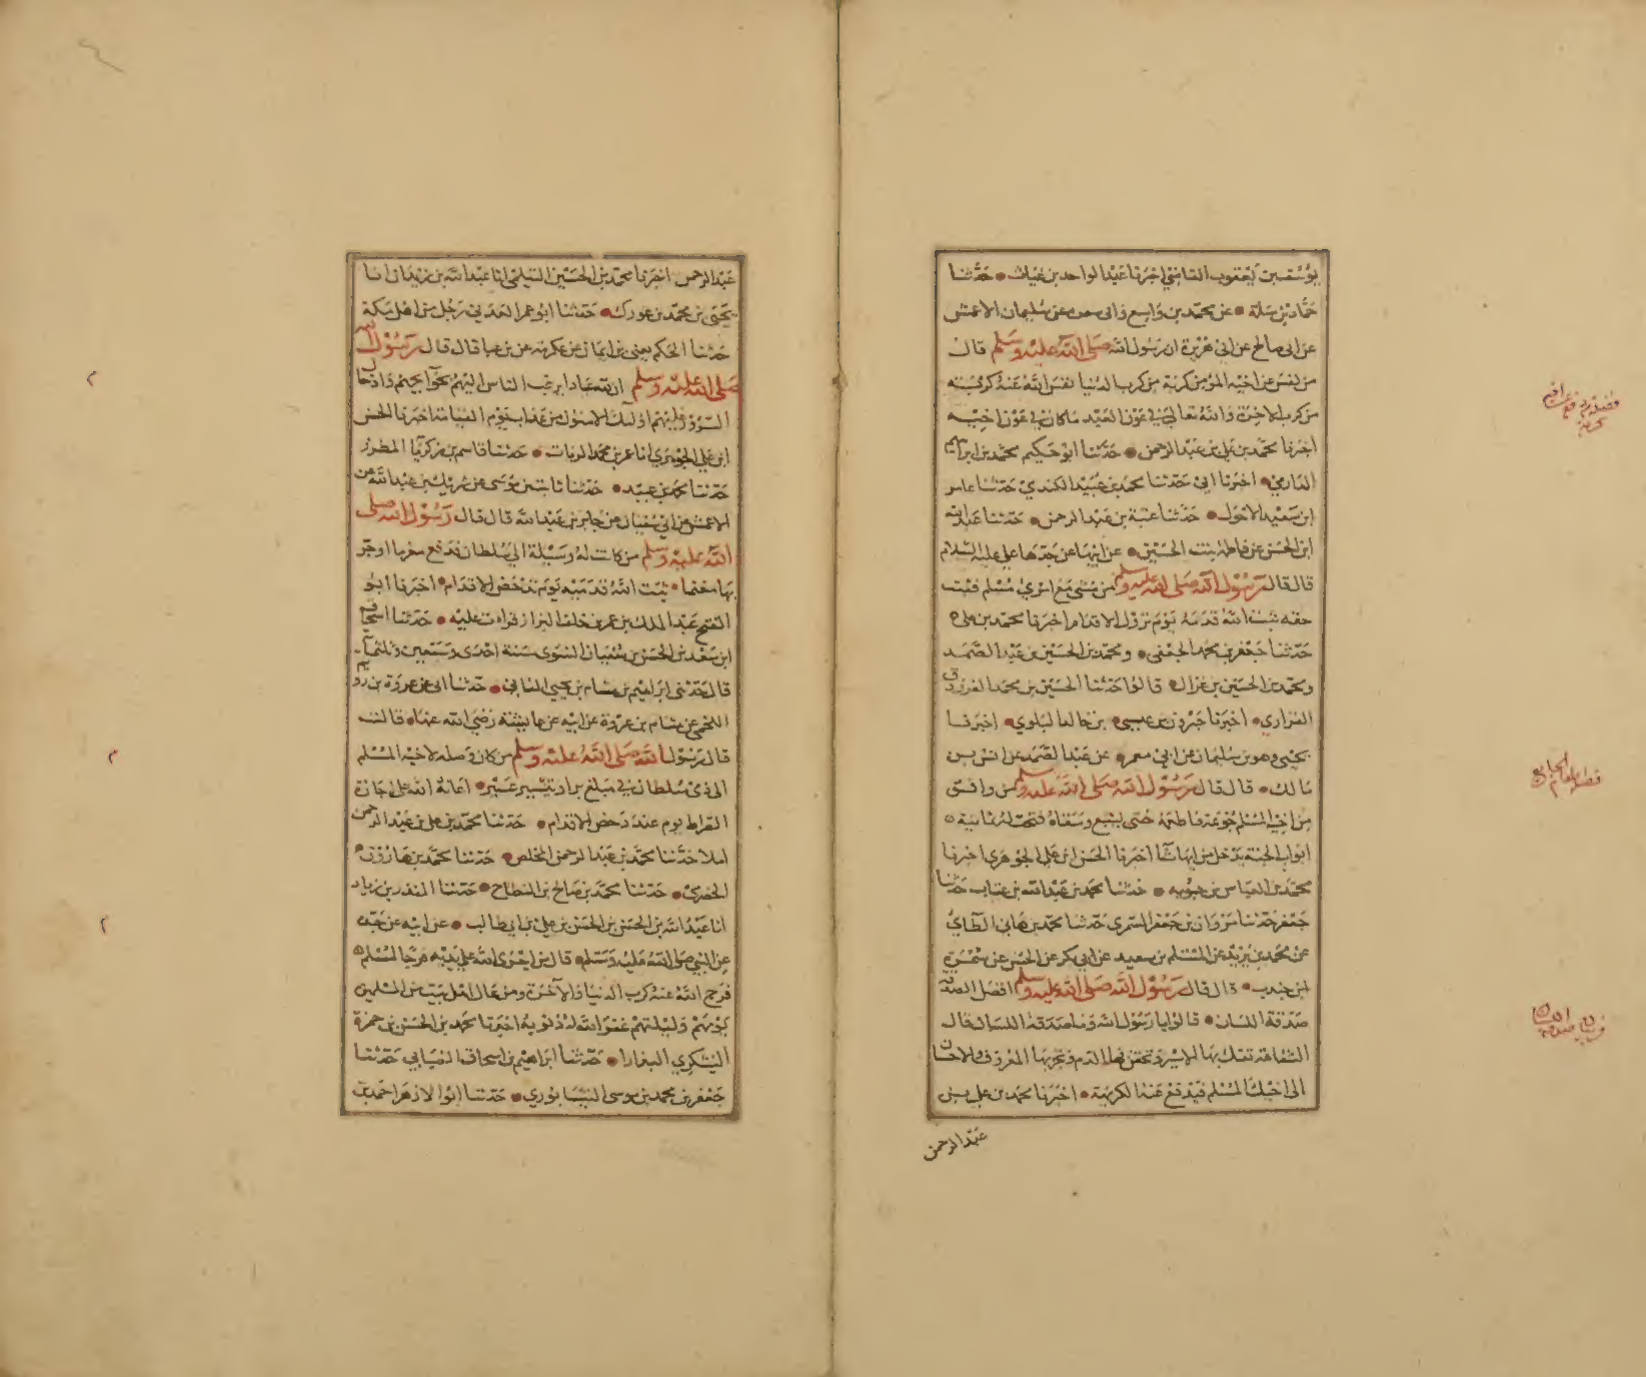 يوسف بن يعقوب القاضي اخبرنا عبد الواحد بن غياث حدثنا
حماد بن سلمة عن محمد بن واسع وابي سورة عن سليمان الاعمش
عن ابي صالح عن ابي هريرة ان رسول الله صلى الله عليه وسلم قال
من نفس عن اخيه المؤمن كربة من كرب الدنيا نفس الله عنه كربته
من كرب الاخرة والله تعالى في عون العبد ما كان في عون اخيه
اخبرنا محمد بن علي بن عبد الرحمن حدثنا ابو حكيم محمد بن ابراهيم
الداري اخبرنا ابي حدثنا محمد بن عبيد الكندي حدثنا عامر
ابن سعيد الاحول حدثنا عتبة بن عبد الرحمن حدثنا عبد الله
ابن الحسن عن فاطمة بنت الحسين عن ابيها عن جدها علي عليه السلام
قال قال رسول الله صلى الله عليه وسلم من مشى مع امرئ مسلم فثبت
حقه ثبت الله قدمه يوم تزول الاقدام اخبرنا محمد بن علي
حدثنا جعفر بن محمد الجعفي ومحمد بن الحسين بن عبد الصمد
ومحمد بن الحسين بن غزال قالوا حدثنا الحسين بن محمد الفرزدق
الفزاري اخبرنا جبرون بن عيسى بن خالد البلوي اخبرنا
يحيى وهو بن سليمان عن ابي معمر عن عبد الصمد عن انس بن
مالك قال قال رسول الله صلى الله عليه وسلم من وافق
من اخيه المسلم جوعة فاطعمه حتى يشبع وسقاه فتحت له ثمانية
ابواب الجنة يدخل من ايها شا اخبرنا الحسن ابن علي الجوهري اخبرنا
محمد بن العباس بن حيويه حدثنا محمد بن عبد الله بن عتاب حدثنا
جعفر حدثنا مروان بن جعفر السمري حدثنا محمد بن هاني الطائي
عن محمد بن يزيد عن المستلم بن سعيد عن ابي بكر عن الحسن عن سمرة
ابن جندب قال قال رسول الله صلى الله عليه وسلم افضل الصدقة
صدقة اللسان قالوا يا رسول الله وما صدقة اللسان قال
الشفاعة تفك بها الاسير وتحقن بها الدم وتجر بها المعروف والاحسان
الى اخيك المسلم فيدفع عنه الكريهة اخبرنا محمد بن علي بن
عبد الرحمن
عبد الرحمن اخبرنا محمد بن الحسين التيملي انا عبد الله بن زيدان انا
يحيى بن محمد بن عورك حدثنا ابو عمر العدني رجل من اهل مكة
حدثنا الحكم يعني بن ابان عن عكرمة عن بن عباس قال قال رسول الله
صلى الله عليه وسلم ان لله عبادا يرغب الناس اليهم بحوائجهم وادخال
السرور عليهم اوليك الامنون من عذاب يوم القيامة اخبرنا الحسن
ابن علي الجوهري انا عمر بن محمد الزيات حدثنا قاسم بن زكريا المطرز
حدثنا محمد بن عبيد حدثنا ثابت بن موسى عن شريك بن عبد الله عن
الاعمش عن ابي سفيان عن جابر بن عبد الله قال قال رسول الله صلى
الله عليه وسلم من كانت له وسيلة الى سلطان فدفع مغرما او جر
بها مغنما ثبت الله قدميه يوم تدحض الاقدام اخبرنا ابو
الفتح عبد الملك بن عمر بن خلف البزاز قراءة عليه حدثنا اسحاق
ابن سعد بن الحسن بن سفيان النسوي سنة احدى وسبعين وثلثماية
قال حدثني ابراهيم بن هشام بن يحيى الغساني حدثنا ابي عن عروة بن رويم
اللخمي عن هشام بن عروة عن ابيه عن عائشة رضي الله عنها قالت
قال رسول الله صلى الله عليه وسلم من كان وصلة لاخيه المسلم
الى ذي سلطان في مبلغ بر او تيسير عسير اعانه الله على اجازة
الصراط يوم عند دحض الاقدام حدثنا محمد بن علي بن عبد الرحمن
املا حدثنا محمد بن عبد الرحمن المخلص حدثنا محمد بن هارون
الحضرمي حدثنا محمد بن صالح بن النطاح حدثنا المنذر بن زياد
انا عبد الله بن الحسن بن الحسن بن علي بن ابي طالب عن ابيه عن جده
عن النبي صلى الله عليه وسلم قال من اجرى الله على يديه فرجا لمسلم
فرج الله عنه كرب الدنيا والآخرة ومن عال اهل بيت من المسلمين
يومهم وليلتهم غفر الله له ذنوبه اخبرنا محمد بن الحسن بن حمزة
اليشكري البغدادي حدثنا ابراهيم بن اسحاق الضبابي حدثنا
جعفر بن محمد بن موسى النيسابوري حدثنا ابو الازهر احمد بن